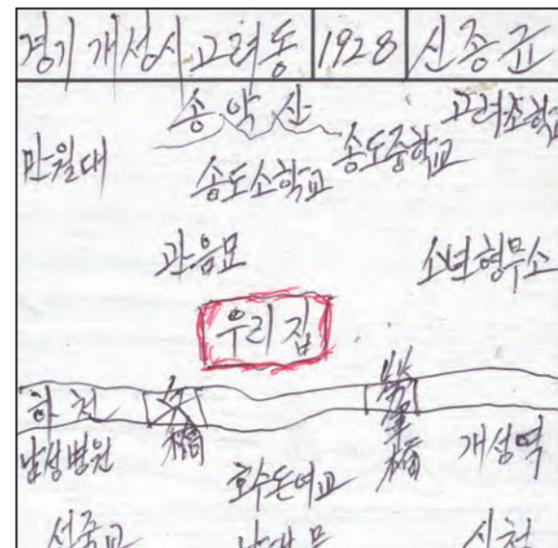 경기 개성시 고려동 1928 신종균
송악산
고려초학교
만월대
송도중학교
송도소학교
관음묘
소년형무소
우리 집
하천
남성병원
개성역
호수돈여고
선죽교 남대문 시청